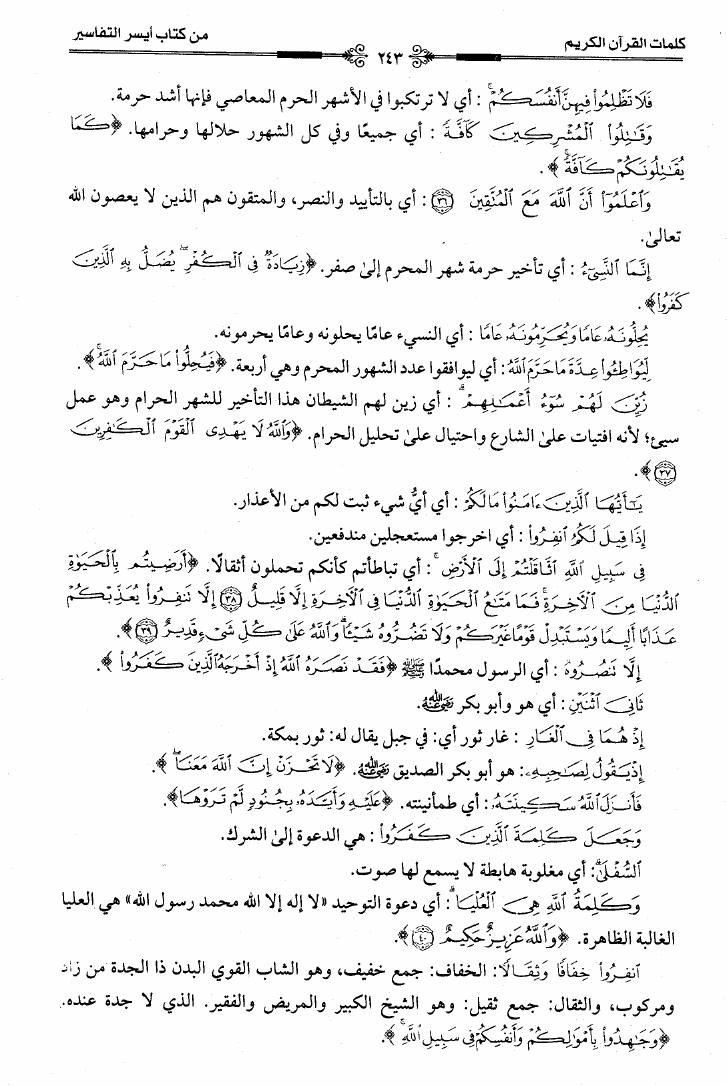 كلمات القرآن الكريم
٢٤٣
من كتاب أيسر التفاسير
فَلَا تَظْلِمُوا۟ فِيهِنَّ أَنفُسَكُمْ ۚ : أي لا ترتكبوا في الأشهر الحرم المعاصي فإنها أشد حرمة.
وَقَٰتِلُوا۟ ٱلْمُشْرِكِينَ كَآفَّةً : أي جميعًا وفي كل الشهور حلالها وحرامها. ﴿كَمَا
يُقَٰتِلُونَكُمْ كَآفَّةً ۚ﴾.
وَٱعْلَمُوٓا۟ أَنَّ ٱللَّهَ مَعَ ٱلْمُتَّقِينَ ٣٦ : أي بالتأييد والنصر، والمتقون هم الذين لا يعصون الله
تعالىٰ.
إِنَّمَا ٱلنَّسِىٓءُ : أي تأخير حرمة شهر المحرم إلىٰ صفر. ﴿زِيَادَةٌ فِى ٱلْكُفْرِ ۖ يُضَلُّ بِهِ ٱلَّذِينَ
كَفَرُوا۟﴾.
يُحِلُّونَهُۥ عَامًا وَيُحَرِّمُونَهُۥ عَامًا : أي النسيء عامًا يحلونه وعامًا يحرمونه.
لِّيُوَاطِـُٔوا۟ عِدَّةَ مَا حَرَّمَ ٱللَّهُ : أي ليوافقوا عدد الشهور المحرم وهي أربعة. ﴿فَيُحِلُّوا۟ مَا حَرَّمَ ٱللَّهُ ۚ﴾.
زُيِّنَ لَهُمْ سُوٓءُ أَعْمَٰلِهِمْ ۗ : أي زين لهم الشيطان هذا التأخير للشهر الحرام وهو عمل
سيئ؛ لأنه افتيات علىٰ الشارع واحتيال علىٰ تحليل الحرام. ﴿وَٱللَّهُ لَا يَهْدِى ٱلْقَوْمَ ٱلْكَٰفِرِينَ
٣٧﴾.
يَٰٓأَيُّهَا ٱلَّذِينَ ءَامَنُوا۟ مَا لَكُمْ : أي أيُّ شيء ثبت لكم من الأعذار.
إِذَا قِيلَ لَكُمُ ٱنفِرُوا۟ : أي اخرجوا مستعجلين مندفعين.
فِى سَبِيلِ ٱللَّهِ ٱثَّاقَلْتُمْ إِلَى ٱلْأَرْضِ ۚ : أي تباطأتم كأنكم تحملون أثقالًا. ﴿أَرَضِيتُم بِٱلْحَيَوٰةِ
ٱلدُّنْيَا مِنَ ٱلْـَٔاخِرَةِ ۚ فَمَا مَتَٰعُ ٱلْحَيَوٰةِ ٱلدُّنْيَا فِى ٱلْـَٔاخِرَةِ إِلَّا قَلِيلٌ ٣٨ إِلَّا تَنفِرُوا۟ يُعَذِّبْكُمْ
عَذَابًا أَلِيمًا وَيَسْتَبْدِلْ قَوْمًا غَيْرَكُمْ وَلَا تَضُرُّوهُ شَيْـًٔا ۗ وَٱللَّهُ عَلَىٰ كُلِّ شَىْءٍ قَدِيرٌ ٣٩﴾.
إِلَّا تَنصُرُوهُ : أي الرسول محمدًا ﷺ ﴿فَقَدْ نَصَرَهُ ٱللَّهُ إِذْ أَخْرَجَهُ ٱلَّذِينَ كَفَرُوا۟﴾.
ثَانِىَ ٱثْنَيْنِ : أي هو وأبو بكر رضي الله عنه.
إِذْ هُمَا فِى ٱلْغَارِ : غار ثور أي: في جبل يقال له: ثور بمكة.
إِذْ يَقُولُ لِصَٰحِبِهِۦ : هو أبو بكر الصديق رضي الله عنه. ﴿لَا تَحْزَنْ إِنَّ ٱللَّهَ مَعَنَا ۖ﴾.
فَأَنزَلَ ٱللَّهُ سَكِينَتَهُۥ : أي طمأنينته. ﴿عَلَيْهِ وَأَيَّدَهُۥ بِجُنُودٍ لَّمْ تَرَوْهَا﴾.
وَجَعَلَ كَلِمَةَ ٱلَّذِينَ كَفَرُوا۟ : هي الدعوة إلىٰ الشرك.
ٱلسُّفْلَىٰ ۗ : أي مغلوبة هابطة لا يسمع لها صوت.
وَكَلِمَةُ ٱللَّهِ هِىَ ٱلْعُلْيَا ۗ : أي دعوة التوحيد «لا إله إلا الله محمد رسول الله» هي العليا
الغالبة الظاهرة. ﴿وَٱللَّهُ عَزِيزٌ حَكِيمٌ ٤٠﴾.
ٱنفِرُوا۟ خِفَافًا وَثِقَالًا : الخفاف: جمع خفيف، وهو الشاب القوي البدن ذا الجدة من زاد
ومركوب، والثقال: جمع ثقيل: وهو الشيخ الكبير والمريض والفقير. الذي لا جدة عنده.
﴿وَجَٰهِدُوا۟ بِأَمْوَٰلِكُمْ وَأَنفُسِكُمْ فِى سَبِيلِ ٱللَّهِ ۚ﴾.